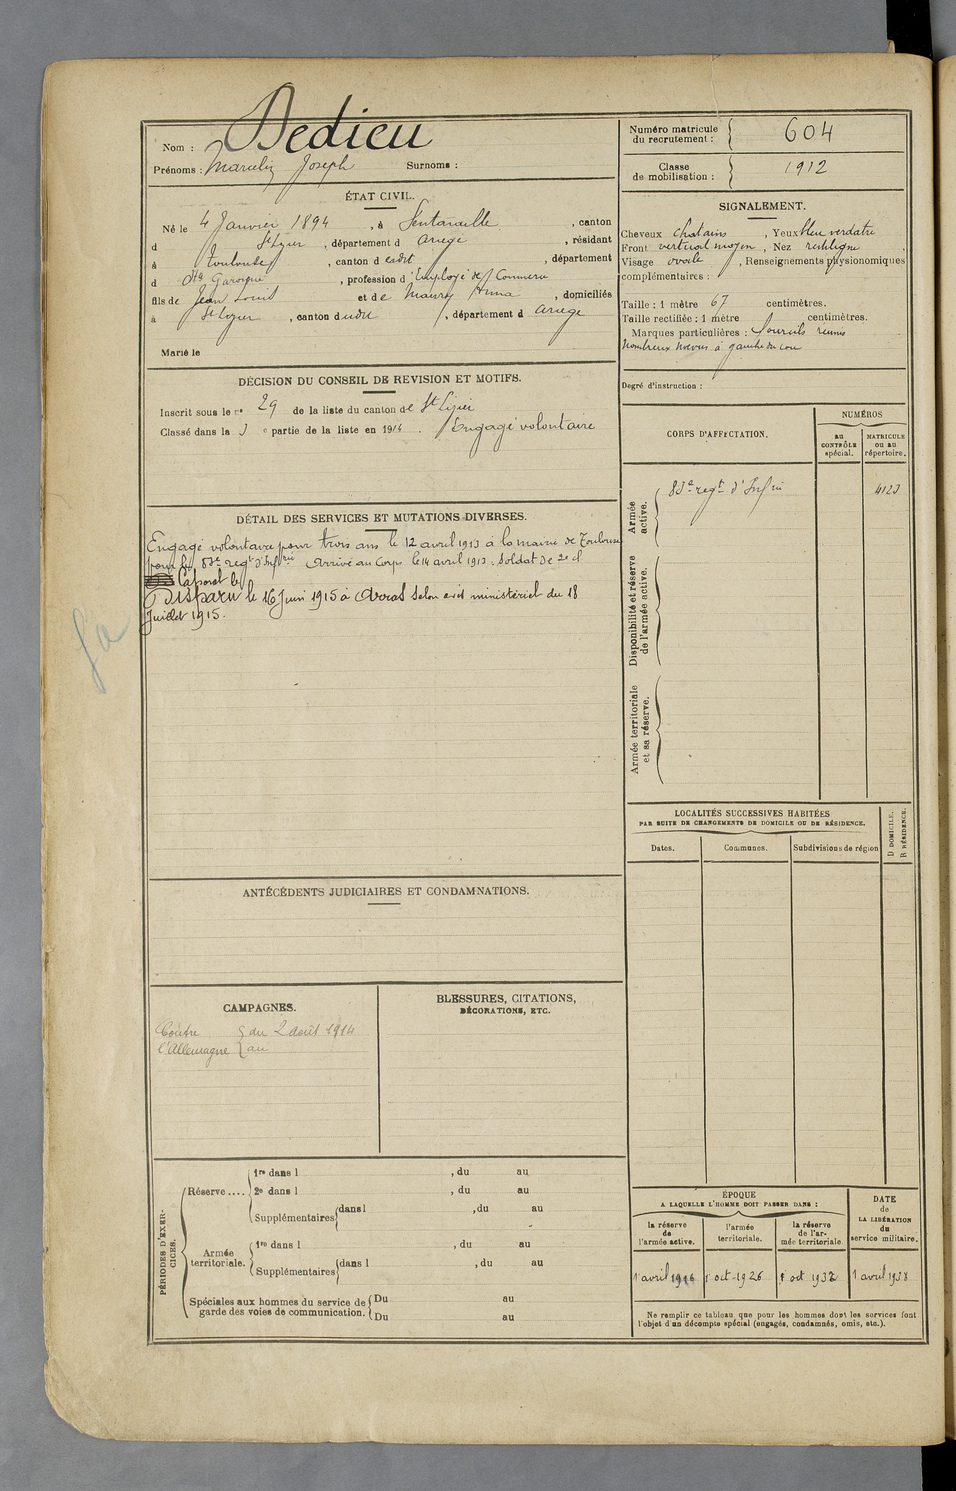 Nom : Dedieu
Prénoms : Marcelin Joseph Surnoms :
ÉTAT CIVIL.
Né le 4 Janvier 1894, à Sentaraille, canton
d St Lizier, département d Ariège, résidant
à Toulouse, canton d eudit, département
d Hte Garonne, profession d'Employé de Commerce
fils de Jean Louis et de Maury Anna, domiciliés
à St Lizier, canton dudit, département d Ariège
Marié le
DÉCISION DU CONSEIL DE REVISION ET MOTIFS.
Inscrit sous le no 29 de la liste du canton de St Lizier
Classé dans la 3 e partie de la liste en 1914. Engagé volontaire
DÉTAIL DES SERVICES ET MUTATIONS DIVERSES.
Engagé volontaire pour trois ans le 12 avril 1913 à la mairie de Toulouse
pour le 83e regt d'Infrie Arrivé au Corps le 14 avril 1913. Soldat de 2e cl
Caporal le
Disparu le 16 Juin 1915 à Arras selon avis ministériel du 18
Juillet 1915.
ANTÉCÉDENTS JUDICIAIRES ET CONDAMNATIONS.
CAMPAGNES.
Contre { du 2 août 1914
l'Allemagne { au
BLESSURES, CITATIONS,
DÉCORATIONS, ETC.
PÉRIODES D'EXERCICES.
Réserve.... 1re dans l , du au
2e dans l , du au
Supplémentaires dans l , du au
Armée territoriale. 1re dans l , du au
Supplémentaires dans l , du au
Spéciales aux hommes du service de Du au
garde des voies de communication. Du au
Numéro matricule
du recrutement : 604
Classe
de mobilisation : 1912
SIGNALEMENT.
Cheveux chatains, Yeux bleu verdatre
Front vertical moyen, Nez rectiligne,
Visage ovale, Renseignements physionomiques
complémentaires :
Taille : 1 mètre 67 centimètres.
Taille rectifiée : 1 mètre centimètres.
Marques particulières : Sourcils reunis
Nombreux noevus à gauche du cou
Degré d'instruction :
CORPS D'AFFECTATION.
NUMÉROS
au
CONTRÔLE
spécial.
MATRICULE
ou au
répertoire.
Armée
active.
83e regt d'Infrie 4123
Disponibilité et réserve
de l'armée active.
Armée territoriale
et sa réserve.
LOCALITÉS SUCCESSIVES HABITÉES
PAR SUITE DE CHANGEMENTS DE DOMICILE OU DE RÉSIDENCE.
D DOMICILE.
R RÉSIDENCE.
Dates. Communes. Subdivisions de région
ÉPOQUE
A LAQUELLE L'HOMME DOIT PASSER DANS :
la réserve
de
l'armée active.
l'armée
territoriale.
la réserve
de l'ar-
mée territoriale
DATE
de
LA LIBÉRATION
du
service militaire.
1 avril 1916 1 oct. 1926 1 oct 1932 1 avril 1938
Ne remplir ce tableau que pour les hommes dont les services font
l'objet d'un décompte spécial (engagés, condamnés, omis, etc.).